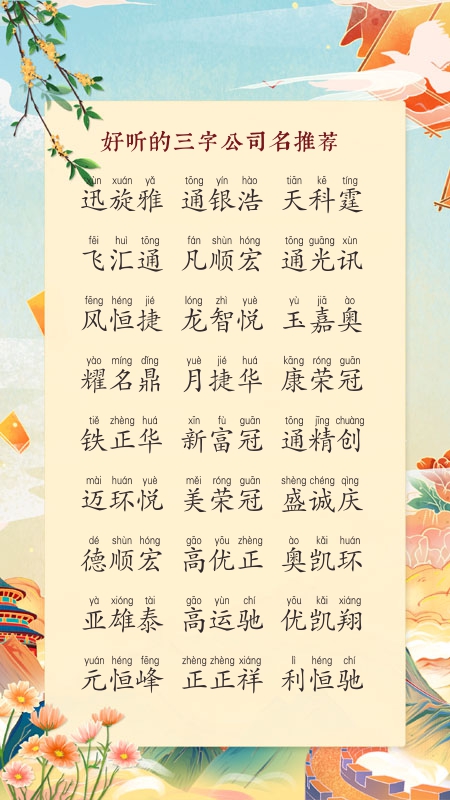 好听的三字公司名推荐
xùn xuán yǎ tōng yín hào tiān kē tíng
迅旋雅 通银浩 天科霆
fēi huì tōng fán shùn hóng tōng guāng xùn
飞汇通 凡顺宏 通光讯
fēng héng jié lóng zhì yuè yù jiā ào
风恒捷 龙智悦 玉嘉奥
yào míng dǐng yuè jié huá kāng róng guān
耀名鼎 月捷华 康荣冠
tiě zhèng huá xīn fù guān tōng jīng chuàng
铁正华 新富冠 通精创
mài huán yuè měi róng guān shèng chéng qìng
迈环悦 美荣冠 盛诚庆
dé shùn hóng gāo yōu zhèng ào kǎi huán
德顺宏 高优正 奥凯环
yà xióng tài gāo yùn chí yōu kǎi xiáng
亚雄泰 高运驰 优凯翔
yuán héng fēng zhèng zhèng xiáng lì héng chí
元恒峰 正正祥 利恒驰